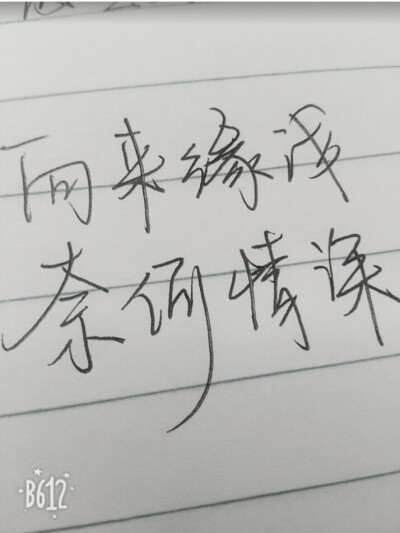 向来缘浅
奈何情深
B612